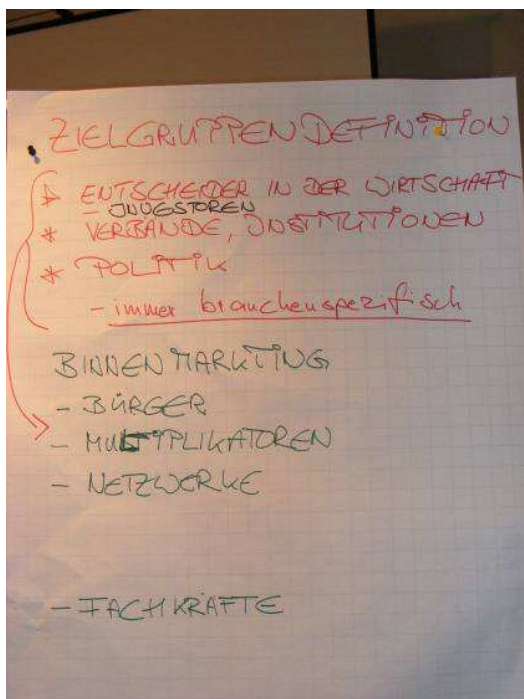 ZIELGRUPPENDEFINITION
* ENTSCHEIDER IN DER WIRTSCHAFT
- INVESTOREN
* VERBÄNDE, INSTITUTIONEN
* POLITIK
- immer branchenspezifisch
BINNENMARKTING
- BÜRGER
- MULTIPLIKATOREN
- NETZWERKE
- FACHKRÄFTE